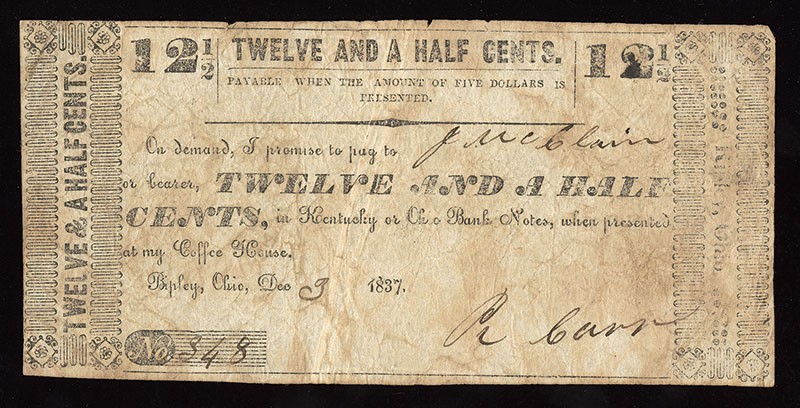 TWELVE & A HALF CENTS.
12½ TWELVE AND A HALF CENTS. 12½
PAYABLE WHEN THE AMOUNT OF FIVE DOLLARS IS
PRESENTED.
On demand, I promise to pay to J McClain
or bearer, TWELVE AND A HALF
CENTS, in Kentucky or Ohio Bank Notes, when presented
at my Coffee House.
Ripley, Ohio, Dec 3 1837.
R Carr
No 348